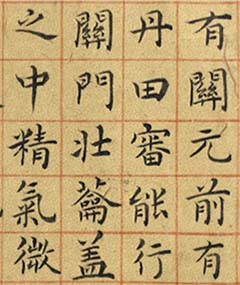 有關元前有
丹田審能行
關門壯蘥盖
之中精氣微